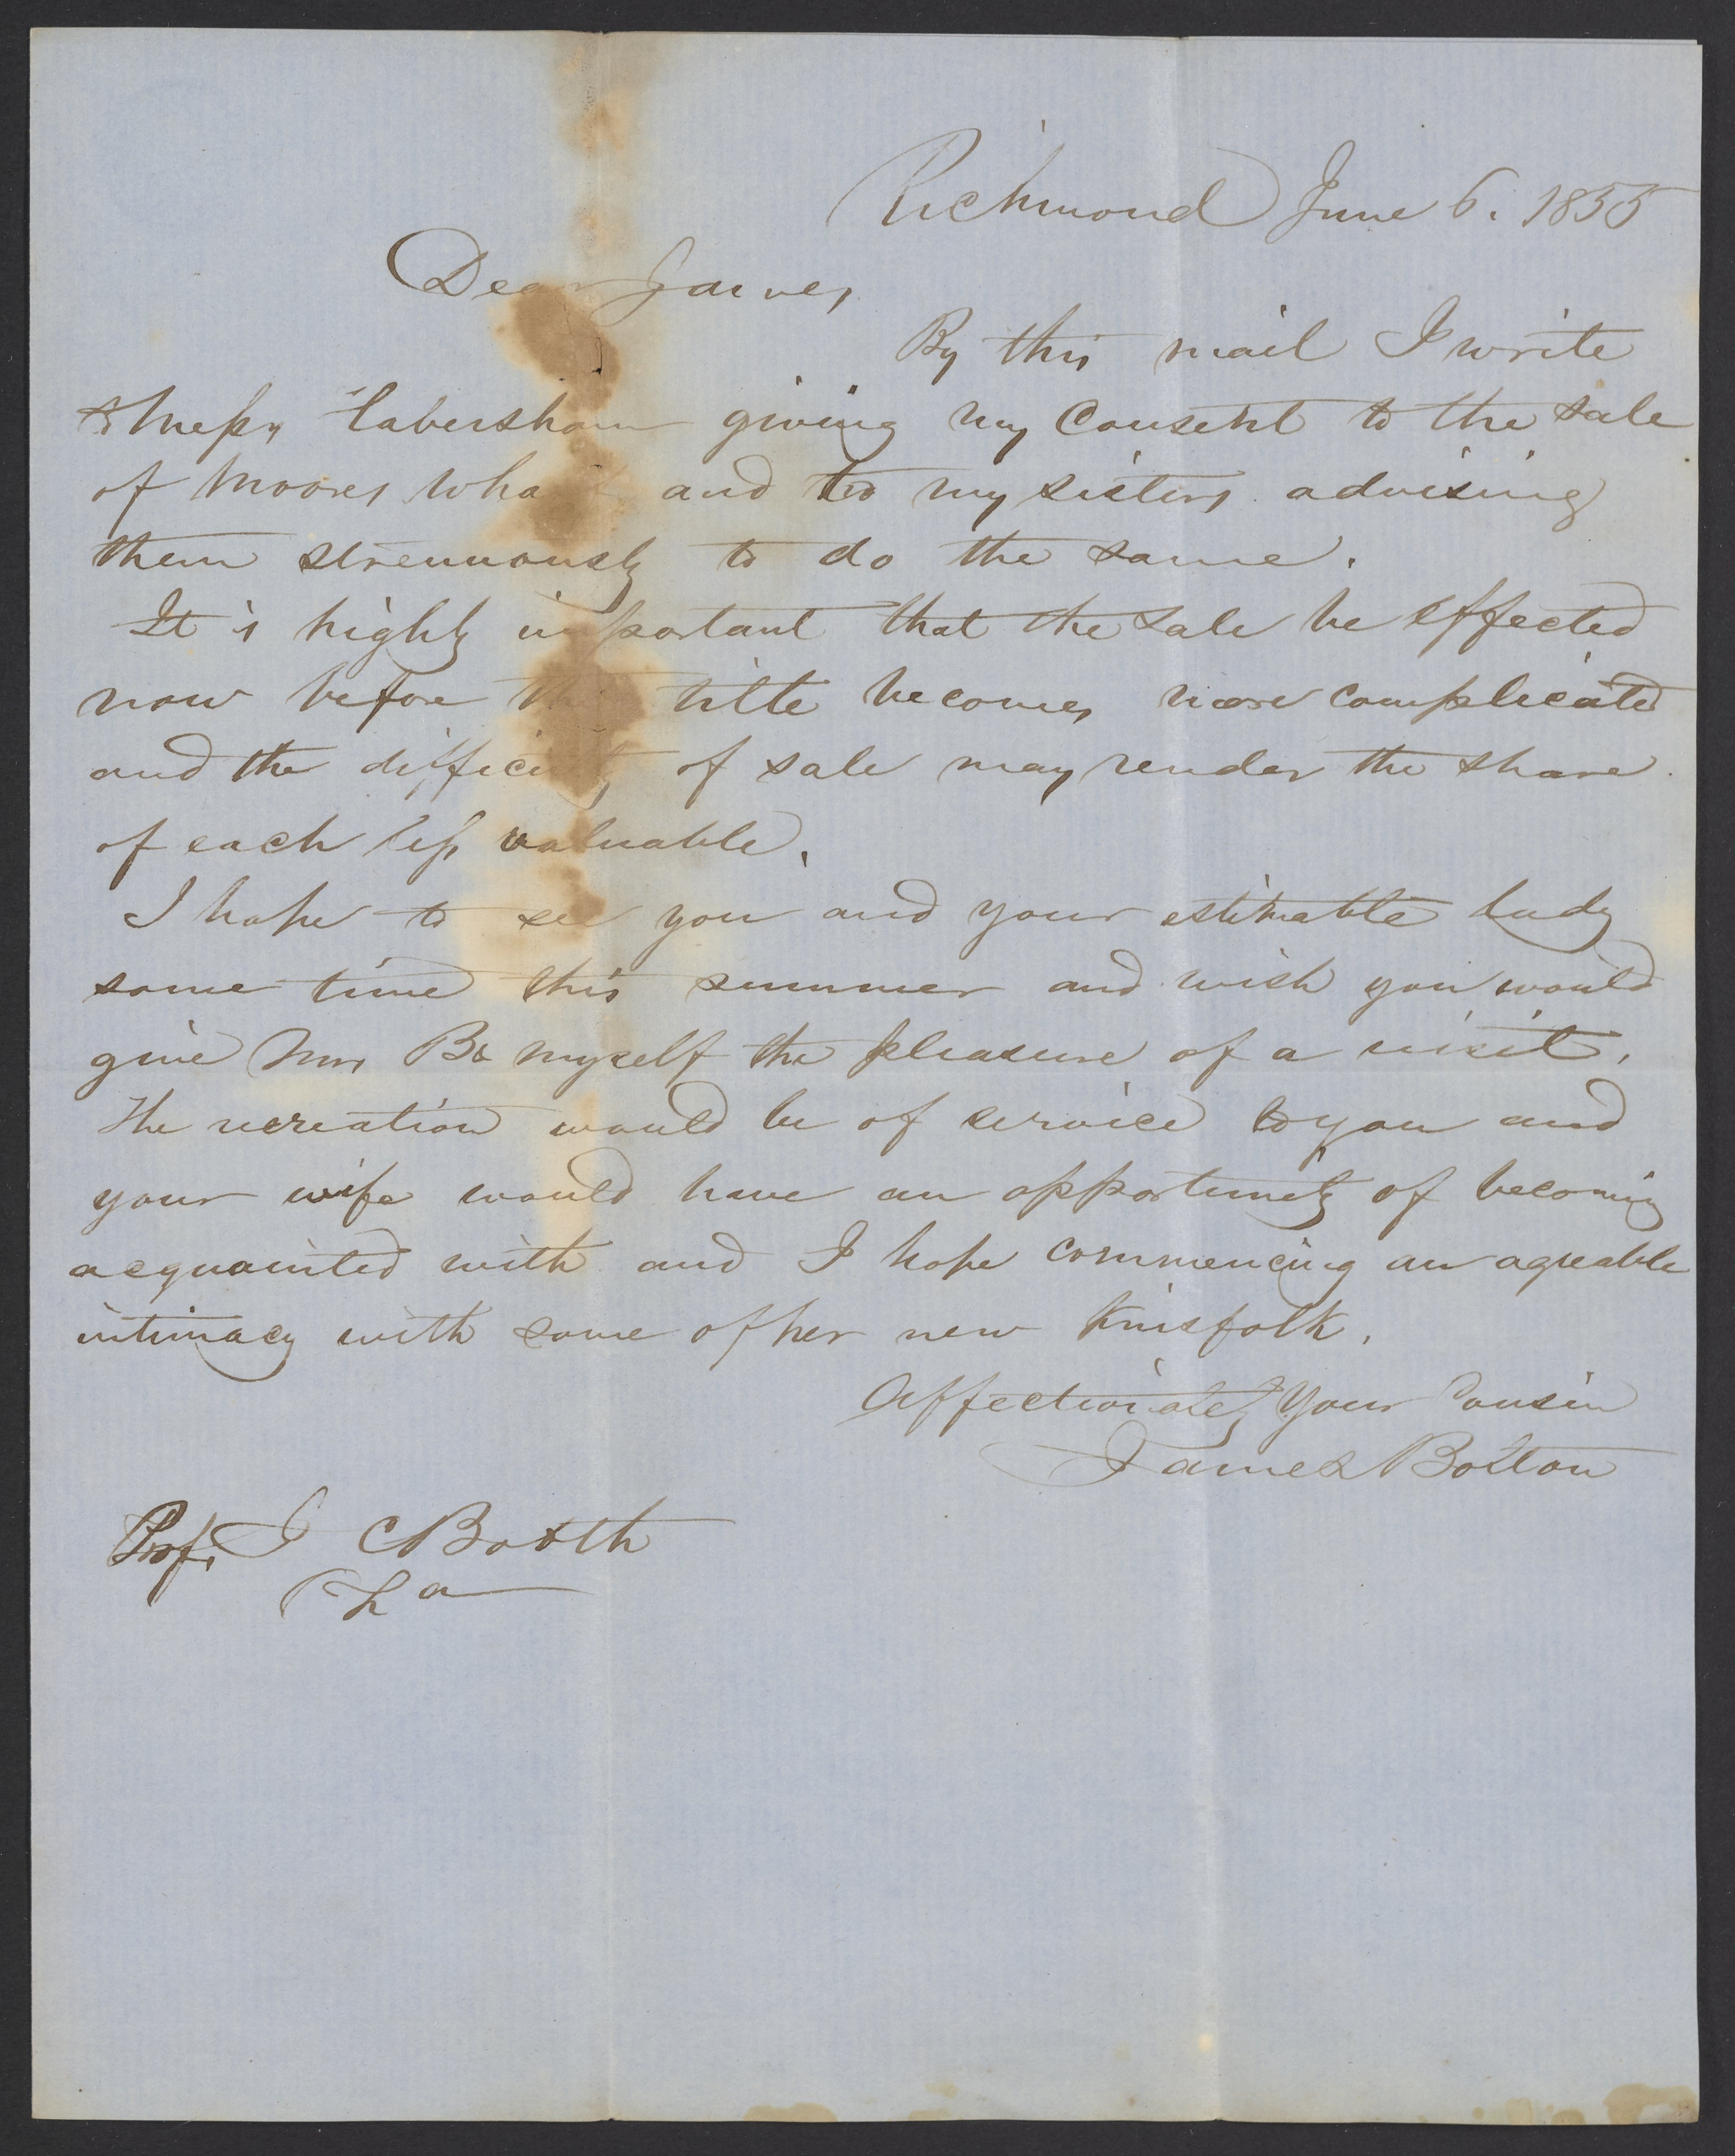 Richmond June 6. 1855
Dear James,
By this mail I write
to Messrs Habersham giving my Consent to the sale
of Moores Wharf and to my sisters advising
them strenuously to do the same.
It is highly important that the sale be effected
now before the title becomes more complicated
and the difficulty of sale may render the share
of each less valuable.
I hope to see you and your estimable lady
some time this summer and wish you would
give Mrs B & myself the pleasure of a visit.
The recreation would be of service to you and
your wife would have an opportunity of becoming
acquainted with and I hope commencing an agreable
intimacy with some of her new Kinsfolk.
Affectionately Your Cousin
James Bolton
Prof. J C Booth